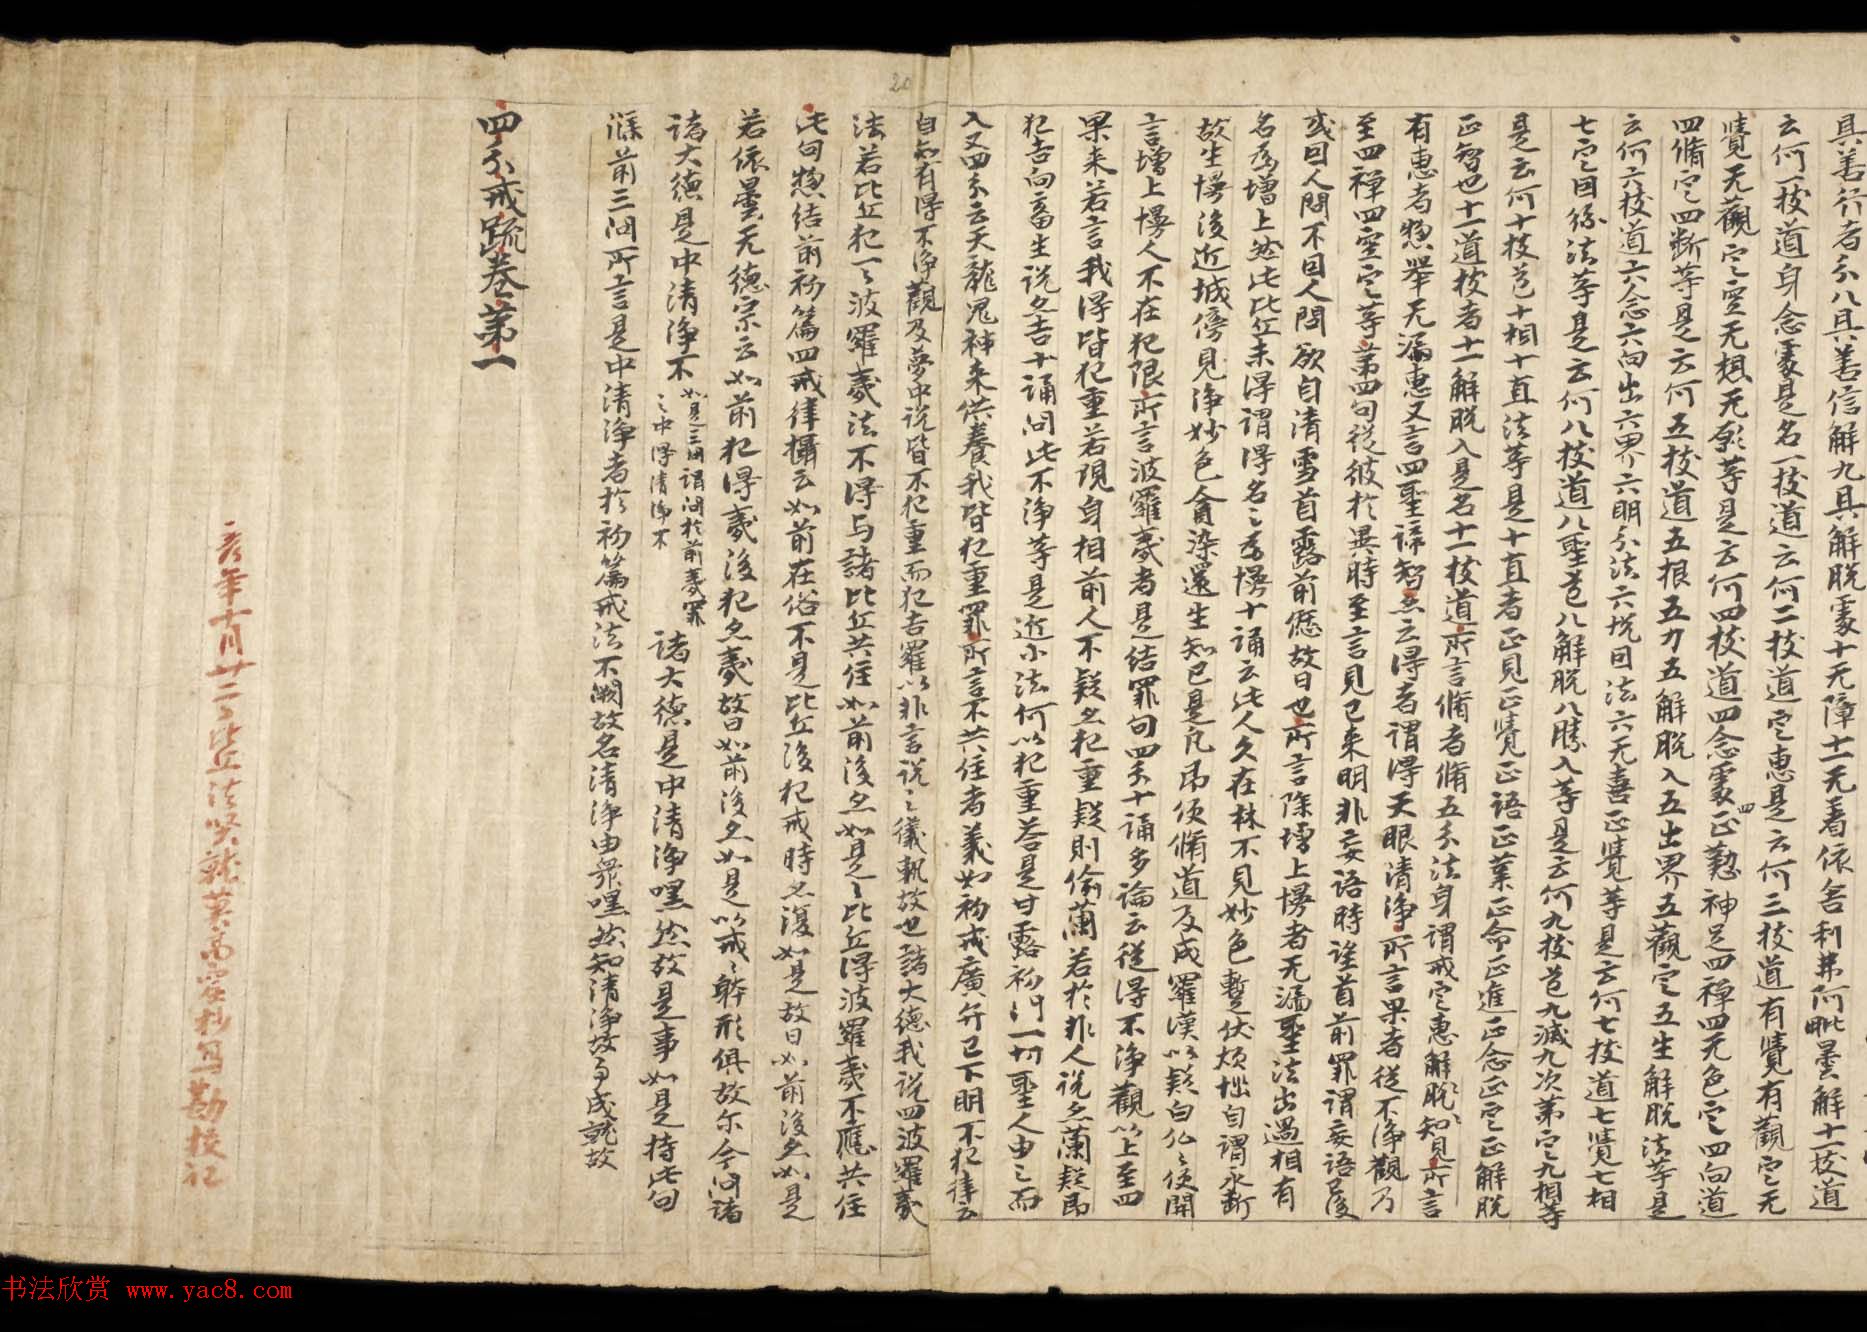 具善行者亦八具善信解九具解脱處十无障十一无著依舍利弗阿毗曇解十一枝道
云何一枝道身念處是名一枝道云何二枝道定惠是云何三枝道有覺有觀定无
覺无觀定空无想无願等是云何四枝道四念處四正懃神足四禪四无色定四向道
四脩定四斷等是云何五枝道五根五力五解脱入五出界五觀定五生解脱法等是
云何六枝道六念六向出六界六明分法六悅因法六无喜正覺等是云何七枝道七覺七相
七定因緣法等是云何八枝道八聖道八解脱八勝入等是云何九枝道九滅九次第定九想等
是云何十枝道十想十直法等是十直者正見正覺正語正業正命正進正念正定正解脱
正智也十一道枝者十一解脱入是名十一枝道所言脩者脩五分法身謂戒定惠解脱知見所言
有惠者惣舉无漏惠又言四聖諦智名云得者謂得天眼清淨所言果者從不淨觀乃
至四禪四空定等第四句從彼於異時至言見已来明非妄語時誰首前罪謂妄語後
或因人問不因人問欲自清雪首露前愆故曰也所言除增上慢者无漏聖法出過相有
名為增上然此比丘未得謂得名之為慢十誦云此人久在林不見妙色蹔伏煩惱自謂永斷
故生慢後近城傍見淨妙色貪染還生知已是凡帛便脩道及成羅漢以疑白仏仏便開
言增上慢人不在犯限所言波羅夷者是結罪句四分十誦多論云從得不淨觀以上至四
果来若言我得皆犯重若現身相前人不疑亦犯重疑則偷蘭若於非人説亦蘭疑即
犯吉向畜生説亦吉十誦問此不淨等是近小法何以犯重荅是甘露初門一切聖人由之而
入又四分云天龍鬼神来供養我皆犯重罪所言不共住者義如初戒廣弁已下明不犯律云
自知有得不淨觀及夢中説皆不犯重而犯吉羅以非言説之儀軌故也諸大德我説四波羅夷
法若比丘犯一一波羅夷法不得与諸比丘共住如前後亦如是是比丘得波羅夷不應共住
此句惣結前初篇四戒律攝云如前在俗不是比丘後犯戒時亦復如是故曰如前後亦如是
若依曇无德宗云如前犯得夷後犯亦夷故曰如前後亦如是以戒戒躰形俱故尒今問諸
諸大德是中清淨不如是三問謂問於前夷罪之中得清淨不諸大德是中清淨嘿然故是事如是持此句
滌前三問所言是中清淨者於初篇戒法不闕故名清淨由衆嘿然知清淨故事成就故
四分戒疏卷第一
亥年十月廿二日比丘法賢就莫高窟抄寫勘挍記
20
书法欣赏 www.yac8.com